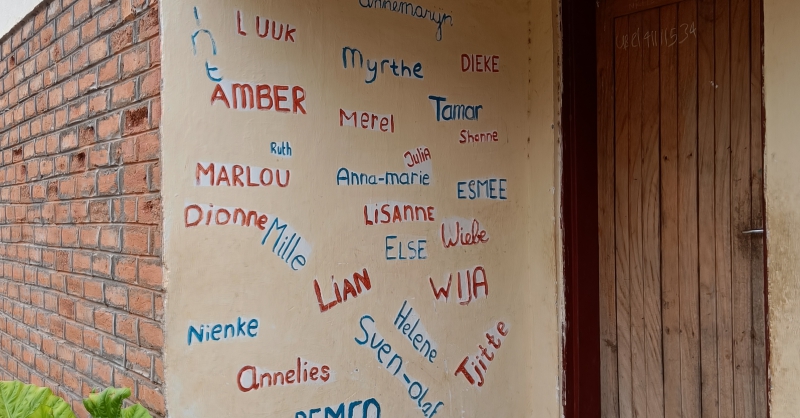 annemarijn
LUUK
Myrthe
DIEKE
AMBER
Merel
Tamar
Shanne
Ruth
Julia
MARLOU
Anna-marie
ESMEE
Dionne
LISANNE
Mille
ELSE
Wiebe
LIAN
WIJA
Nienke
Helene
Sven-Olaf
Tjitte
Annelies
REMCO